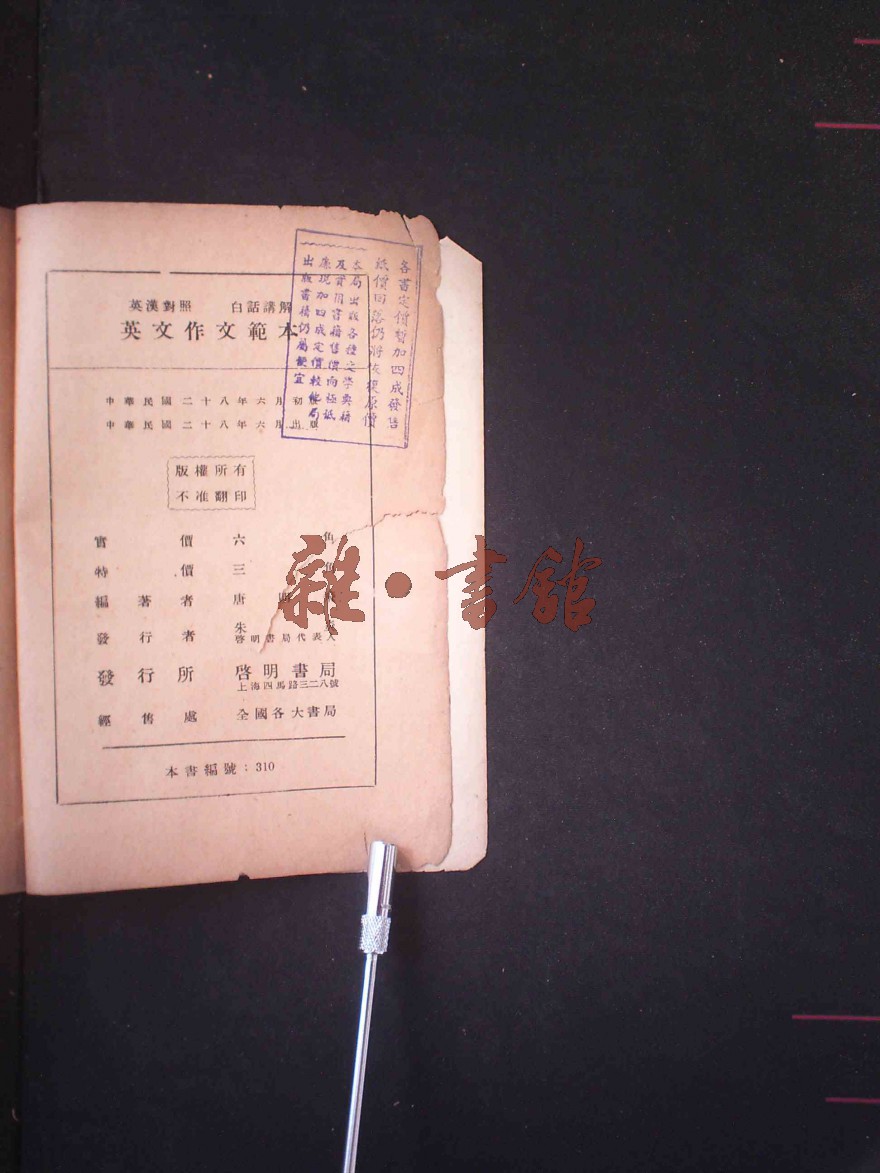 英漢對照 白話講解
英文作文範本
中華民國二十八年六月初版
中華民國二十八年六月出版
版權所有
不准翻印
實價六角
特價三角
編著者 唐
發行者 朱
啓明書局代表人
發行所 啓明書局
上海四馬路三二八號
經售處 全國各大書局
本書編號：310
各書定價暫加四成發售
紙價回落仍將恢復原價
本局出版各種文學典籍
及實用書籍售價向極低
廉現加四成定價較他局
出版書籍仍屬便宜
雜·書館